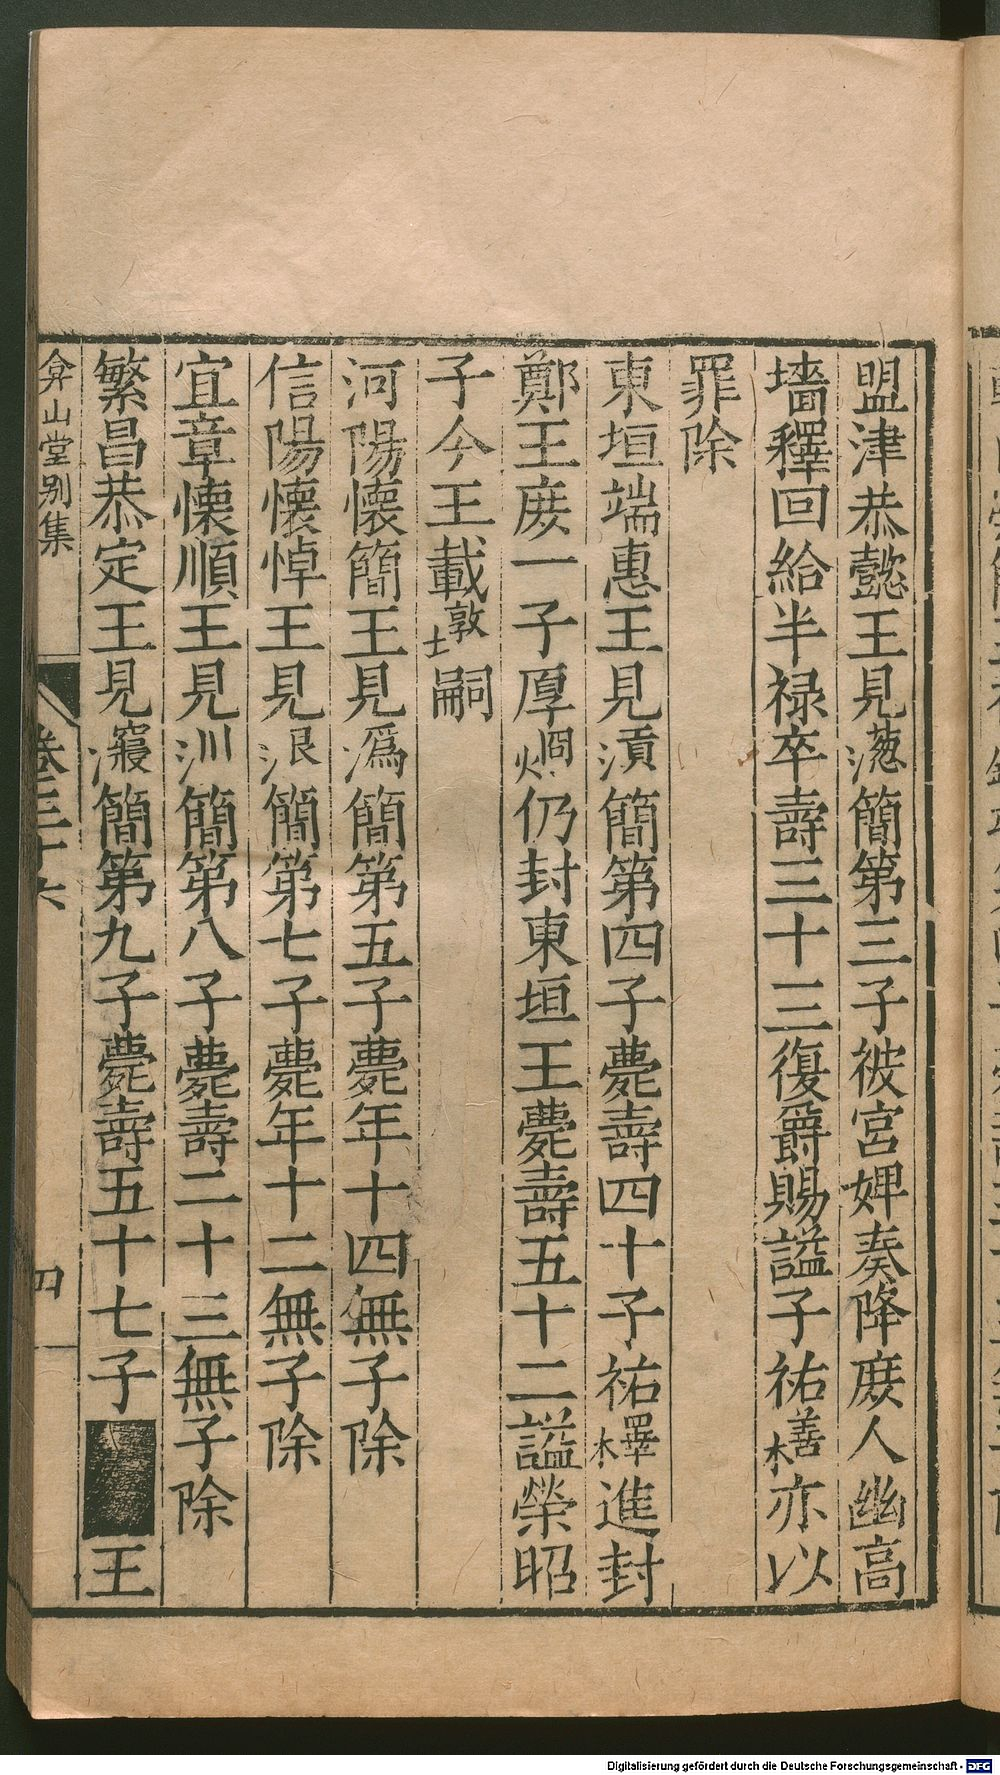 盟津恭懿王見𣹢簡第三子被宮婢奏降庻人幽高
墻釋回給半禄卒壽三十三復爵賜謚子祐橏亦以
罪除
東垣端惠王見𣿰簡第四子薨壽四十子祐檡進封
鄭王庻一子厚烱仍封東垣王薨壽五十二謚榮昭
子今王載墩嗣
河陽懷簡王見溈簡第五子薨年十四無子除
信陽懷悼王見泿簡第七子薨年十二無子除
宜章懷順王見汌簡第八子薨壽二十三無子除
繁昌恭定王見簡第九子薨壽五十七子王
弇山堂别集
卷三十六
四
Digitalisierung gefördert durch die Deutsche Forschungsgemeinschaft - DFG